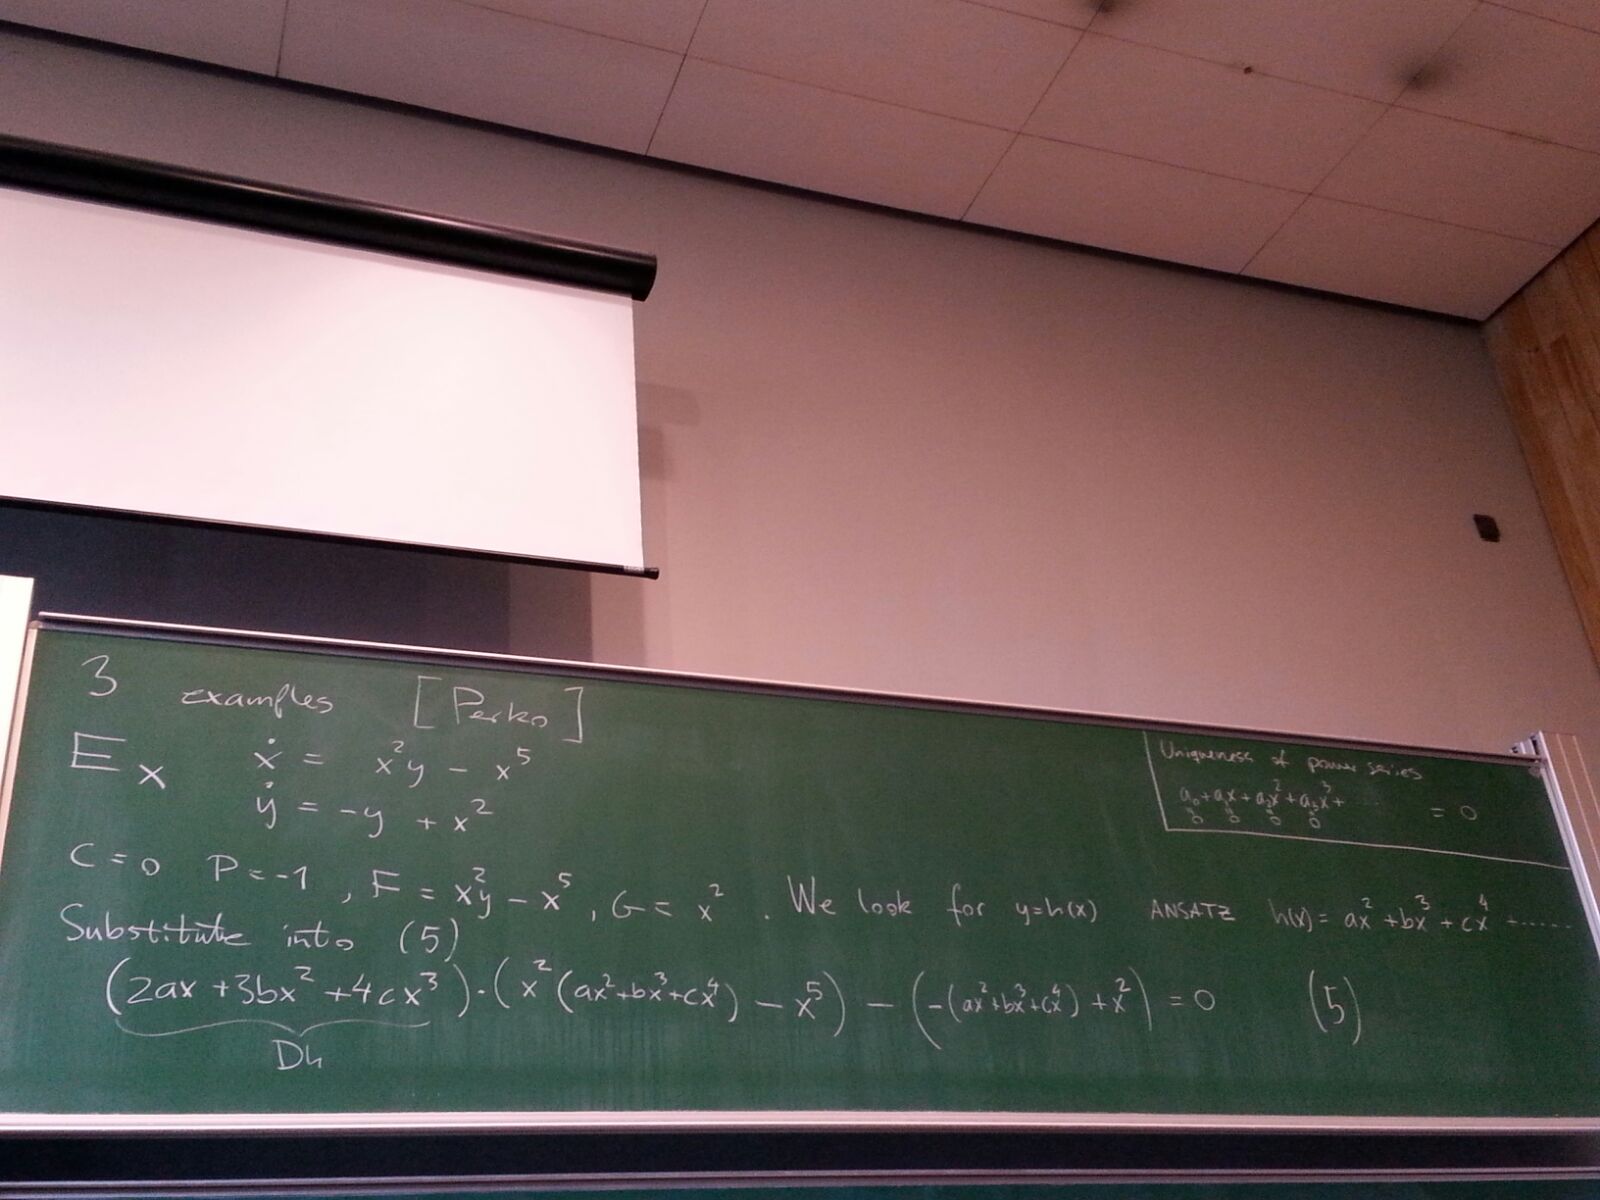 3 examples [Perko]
Ex ẋ = x²y − x⁵
ẏ = −y + x²
Uniqueness of power series
a₀ + a₁x + a₂x² + a₃x³ + ...... = 0
0 0 0 0
C = 0 P = −1, F = x²y − x⁵, G = x². We look for y=h(x) ANSATZ h(x) = ax² + bx³ + cx⁴ + ......
Substitute into (5)
(2ax + 3bx² + 4cx³)·(x²(ax²+bx³+cx⁴) − x⁵) − (−(ax²+bx³+cx⁴) + x²) = 0 (5)
Dh